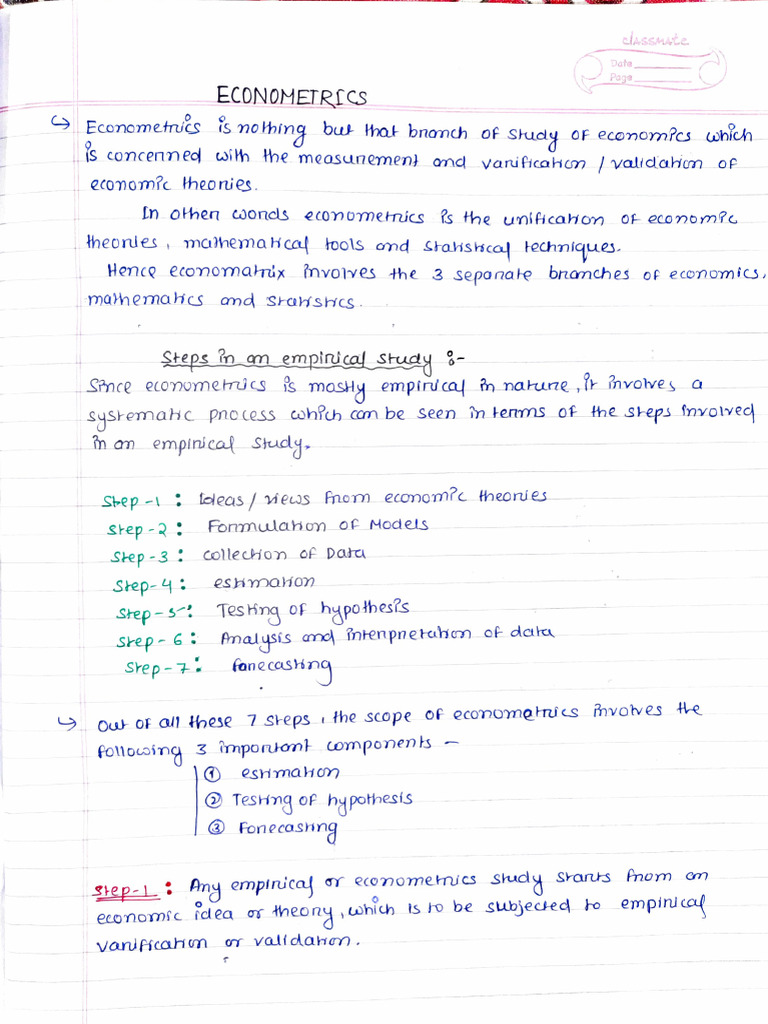 classmate
Date
Page
ECONOMETRICS
↪ Econometrics is nothing but that branch of study of economics which
is concerned with the measurement and varification / validation of
economic theories.
In other words econometrics is the unification of economic
theories, mathematical tools and statistical techniques.
Hence economatrix involves the 3 separate branches of economics,
mathematics and statistics.
Steps in an empirical study :-
Since econometrics is mostly empirical in nature, it involves a
systematic process which can be seen in terms of the steps involved
in an empirical study.
Step-1 : Ideas / views from economic theories
Step-2 : Formulation of Models
Step-3 : collection of Data
Step-4 : estimation
Step-5 : Testing of hypothesis
Step-6 : Analysis and interpretation of data
Step-7 : forecasting
↪ Out of all these 7 steps, the scope of econometrics involves the
following 3 important components —
① estimation
② Testing of hypothesis
③ Forecasting
Step-1 : Any empirical or econometrics study starts from an
economic idea or theory, which is to be subjected to empirical
varification or validation.